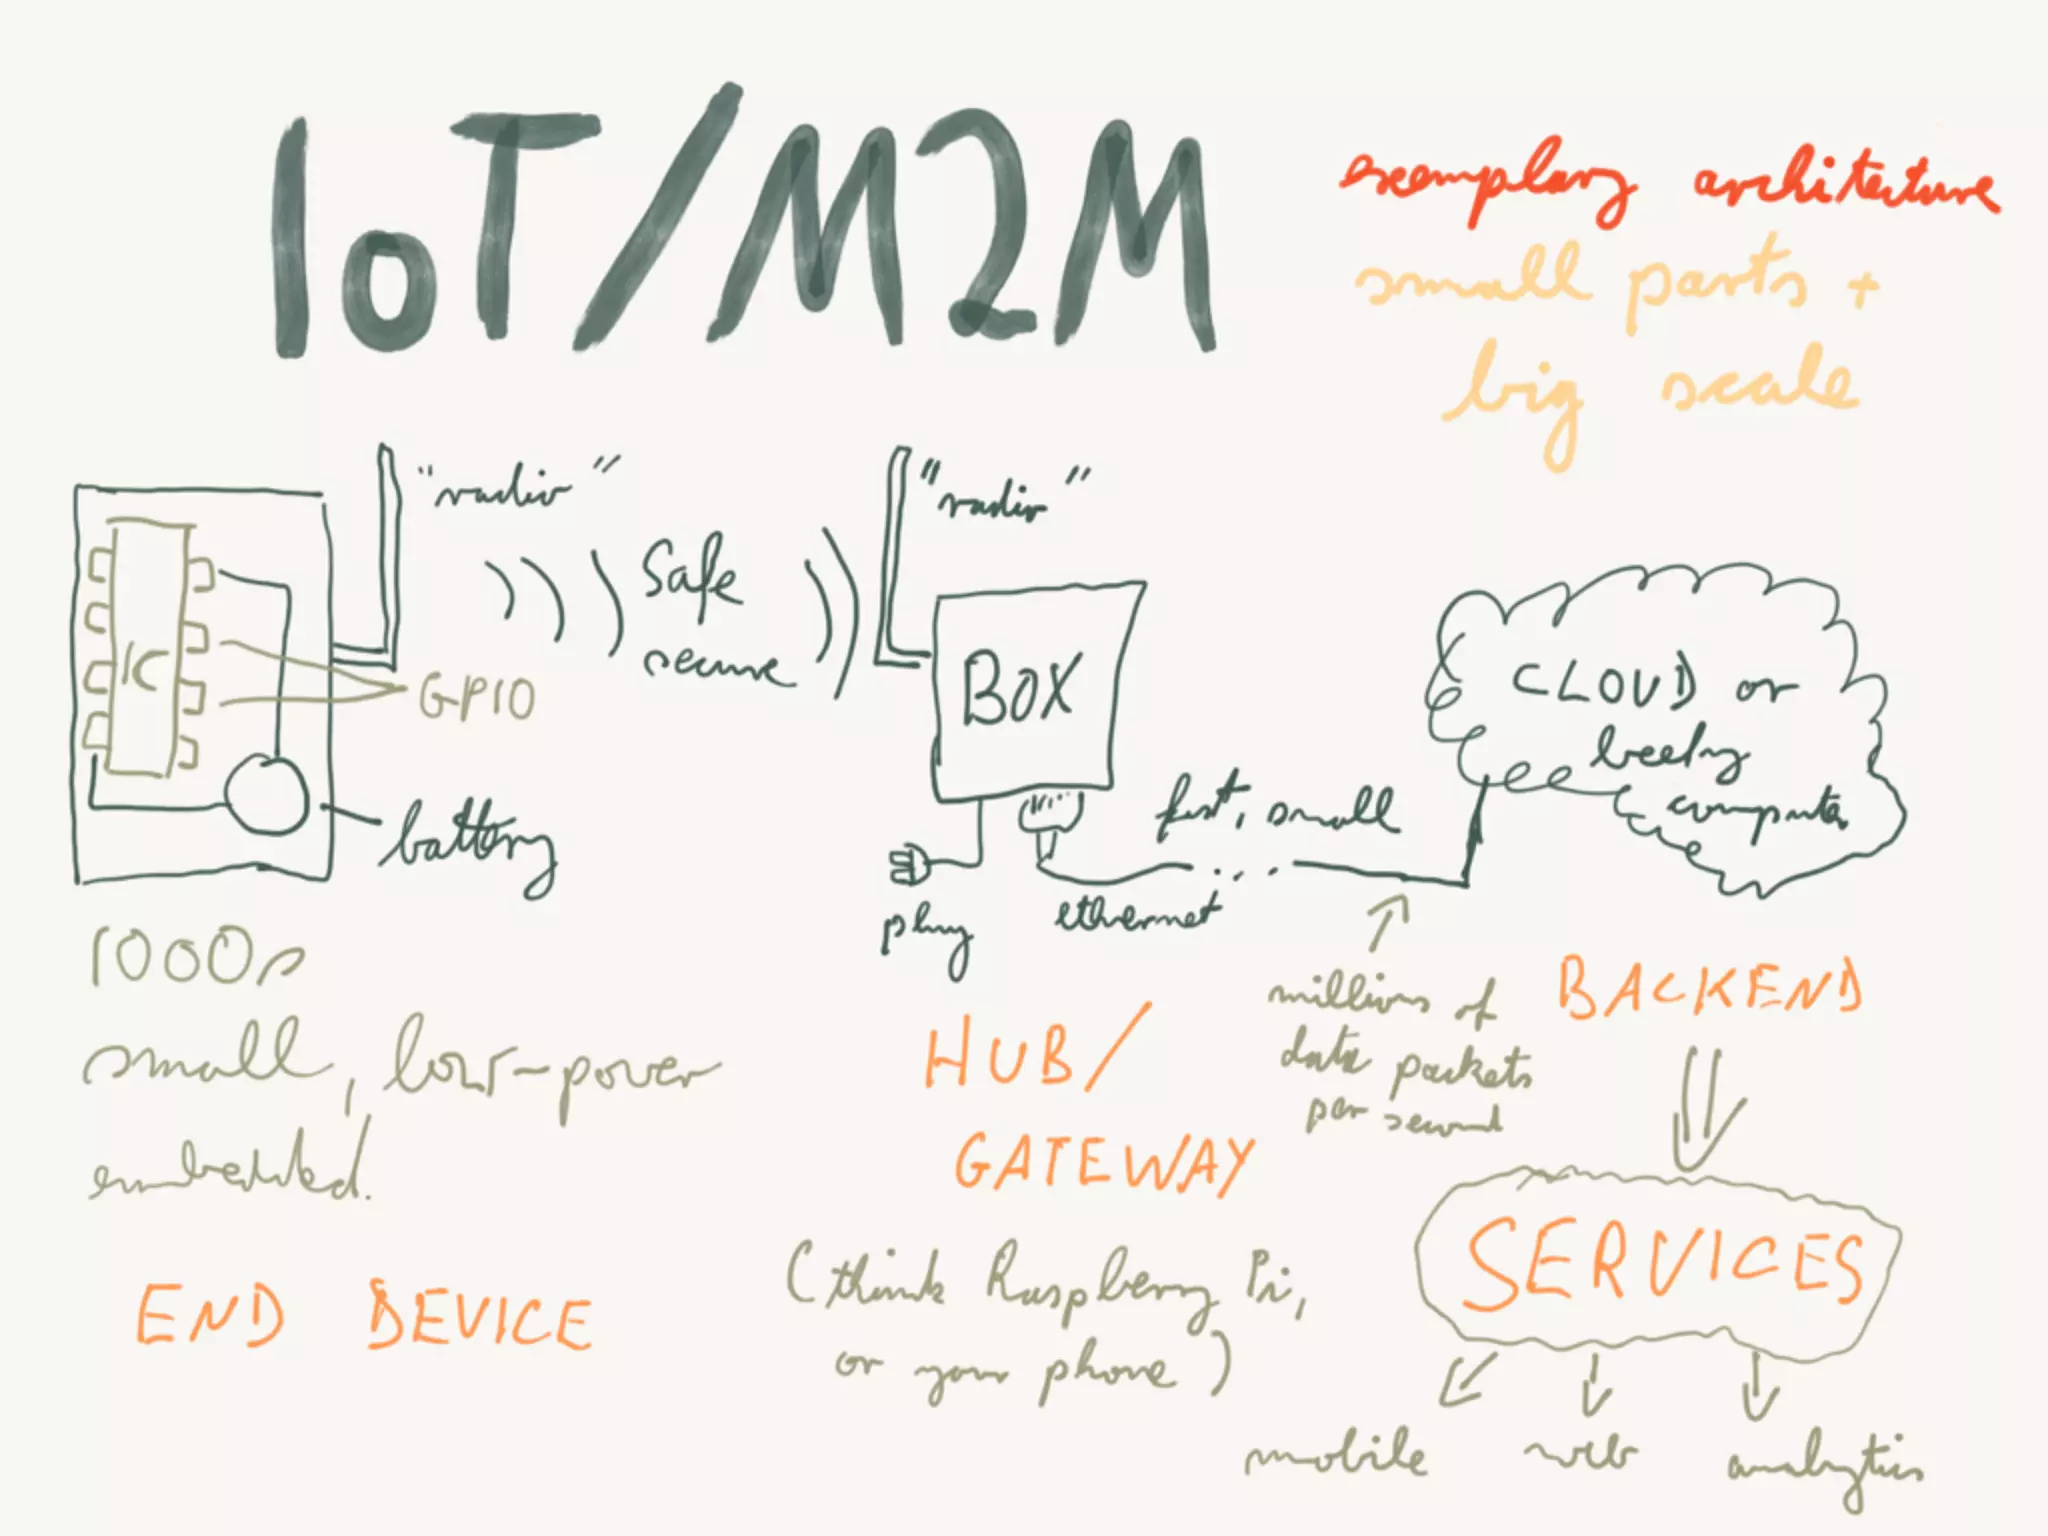 IoT/M2M
exemplary architecture
small parts +
big scale
"radio"
"radio"
Safe
secure
IC
GPIO
battery
BOX
plug
ethernet
fast, small
CLOUD or
beefy
computer
1000s
small, low-power
embedded.
END DEVICE
HUB/
GATEWAY
(think Raspberry Pi,
or your phone)
millions of
data packets
per second
BACKEND
SERVICES
mobile
web
analytics